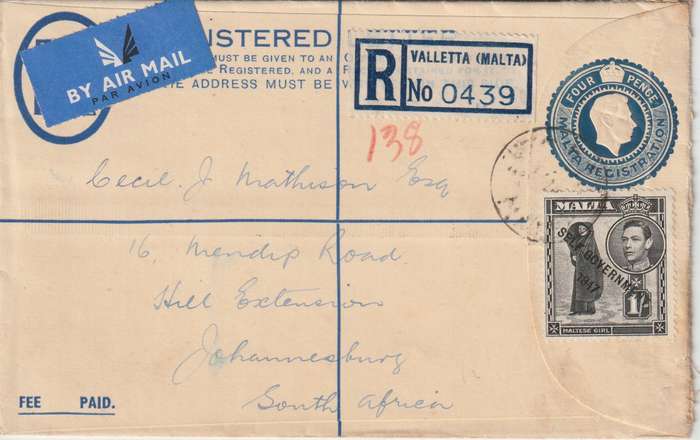 BY AIR MAIL
PAR AVION
ISTERED
MUST BE GIVEN TO AN O
REGISTERED, AND A R
HE ADDRESS MUST BE
R
VALLETTA (MALTA)
No 0439
138
FOUR PENCE
MALTA REGISTRATION
MALTA
SELF-GOVERNMENT
1947
1/-
MALTESE GIRL
Cecil J Mathison Esq
16, Mendip Road
Hill Extension
Johannesburg
South Africa
FEE PAID.